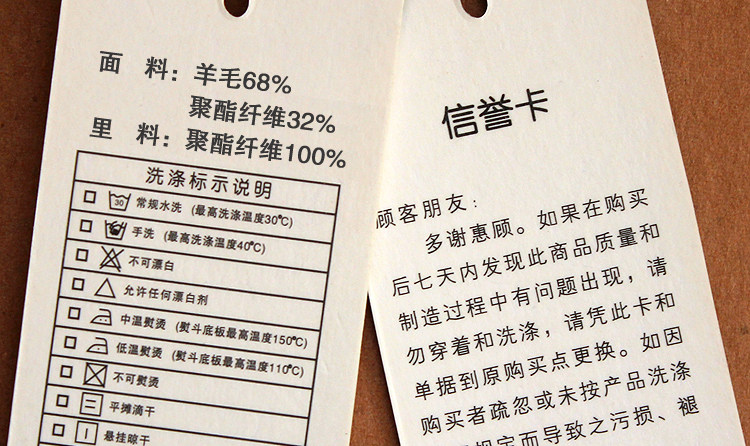 面 料：羊毛68%
聚酯纤维32%
里 料：聚酯纤维100%
洗涤标示说明
30 常规水洗 (最高洗涤温度30℃)
手洗 (最高洗涤温度40℃)
不可漂白
允许任何漂白剂
中温熨烫 (熨斗底板最高温度150℃)
低温熨烫 (熨斗底板最高温度110℃)
不可熨烫
平摊滴干
悬挂晾干
信誉卡
顾客朋友：
多谢惠顾。如果在购买
后七天内发现此商品质量和
制造过程中有问题出现，请
勿穿着和洗涤，请凭此卡和
单据到原购买点更换。如因
购买者疏忽或未按产品洗涤
规定而导致之污损、褪